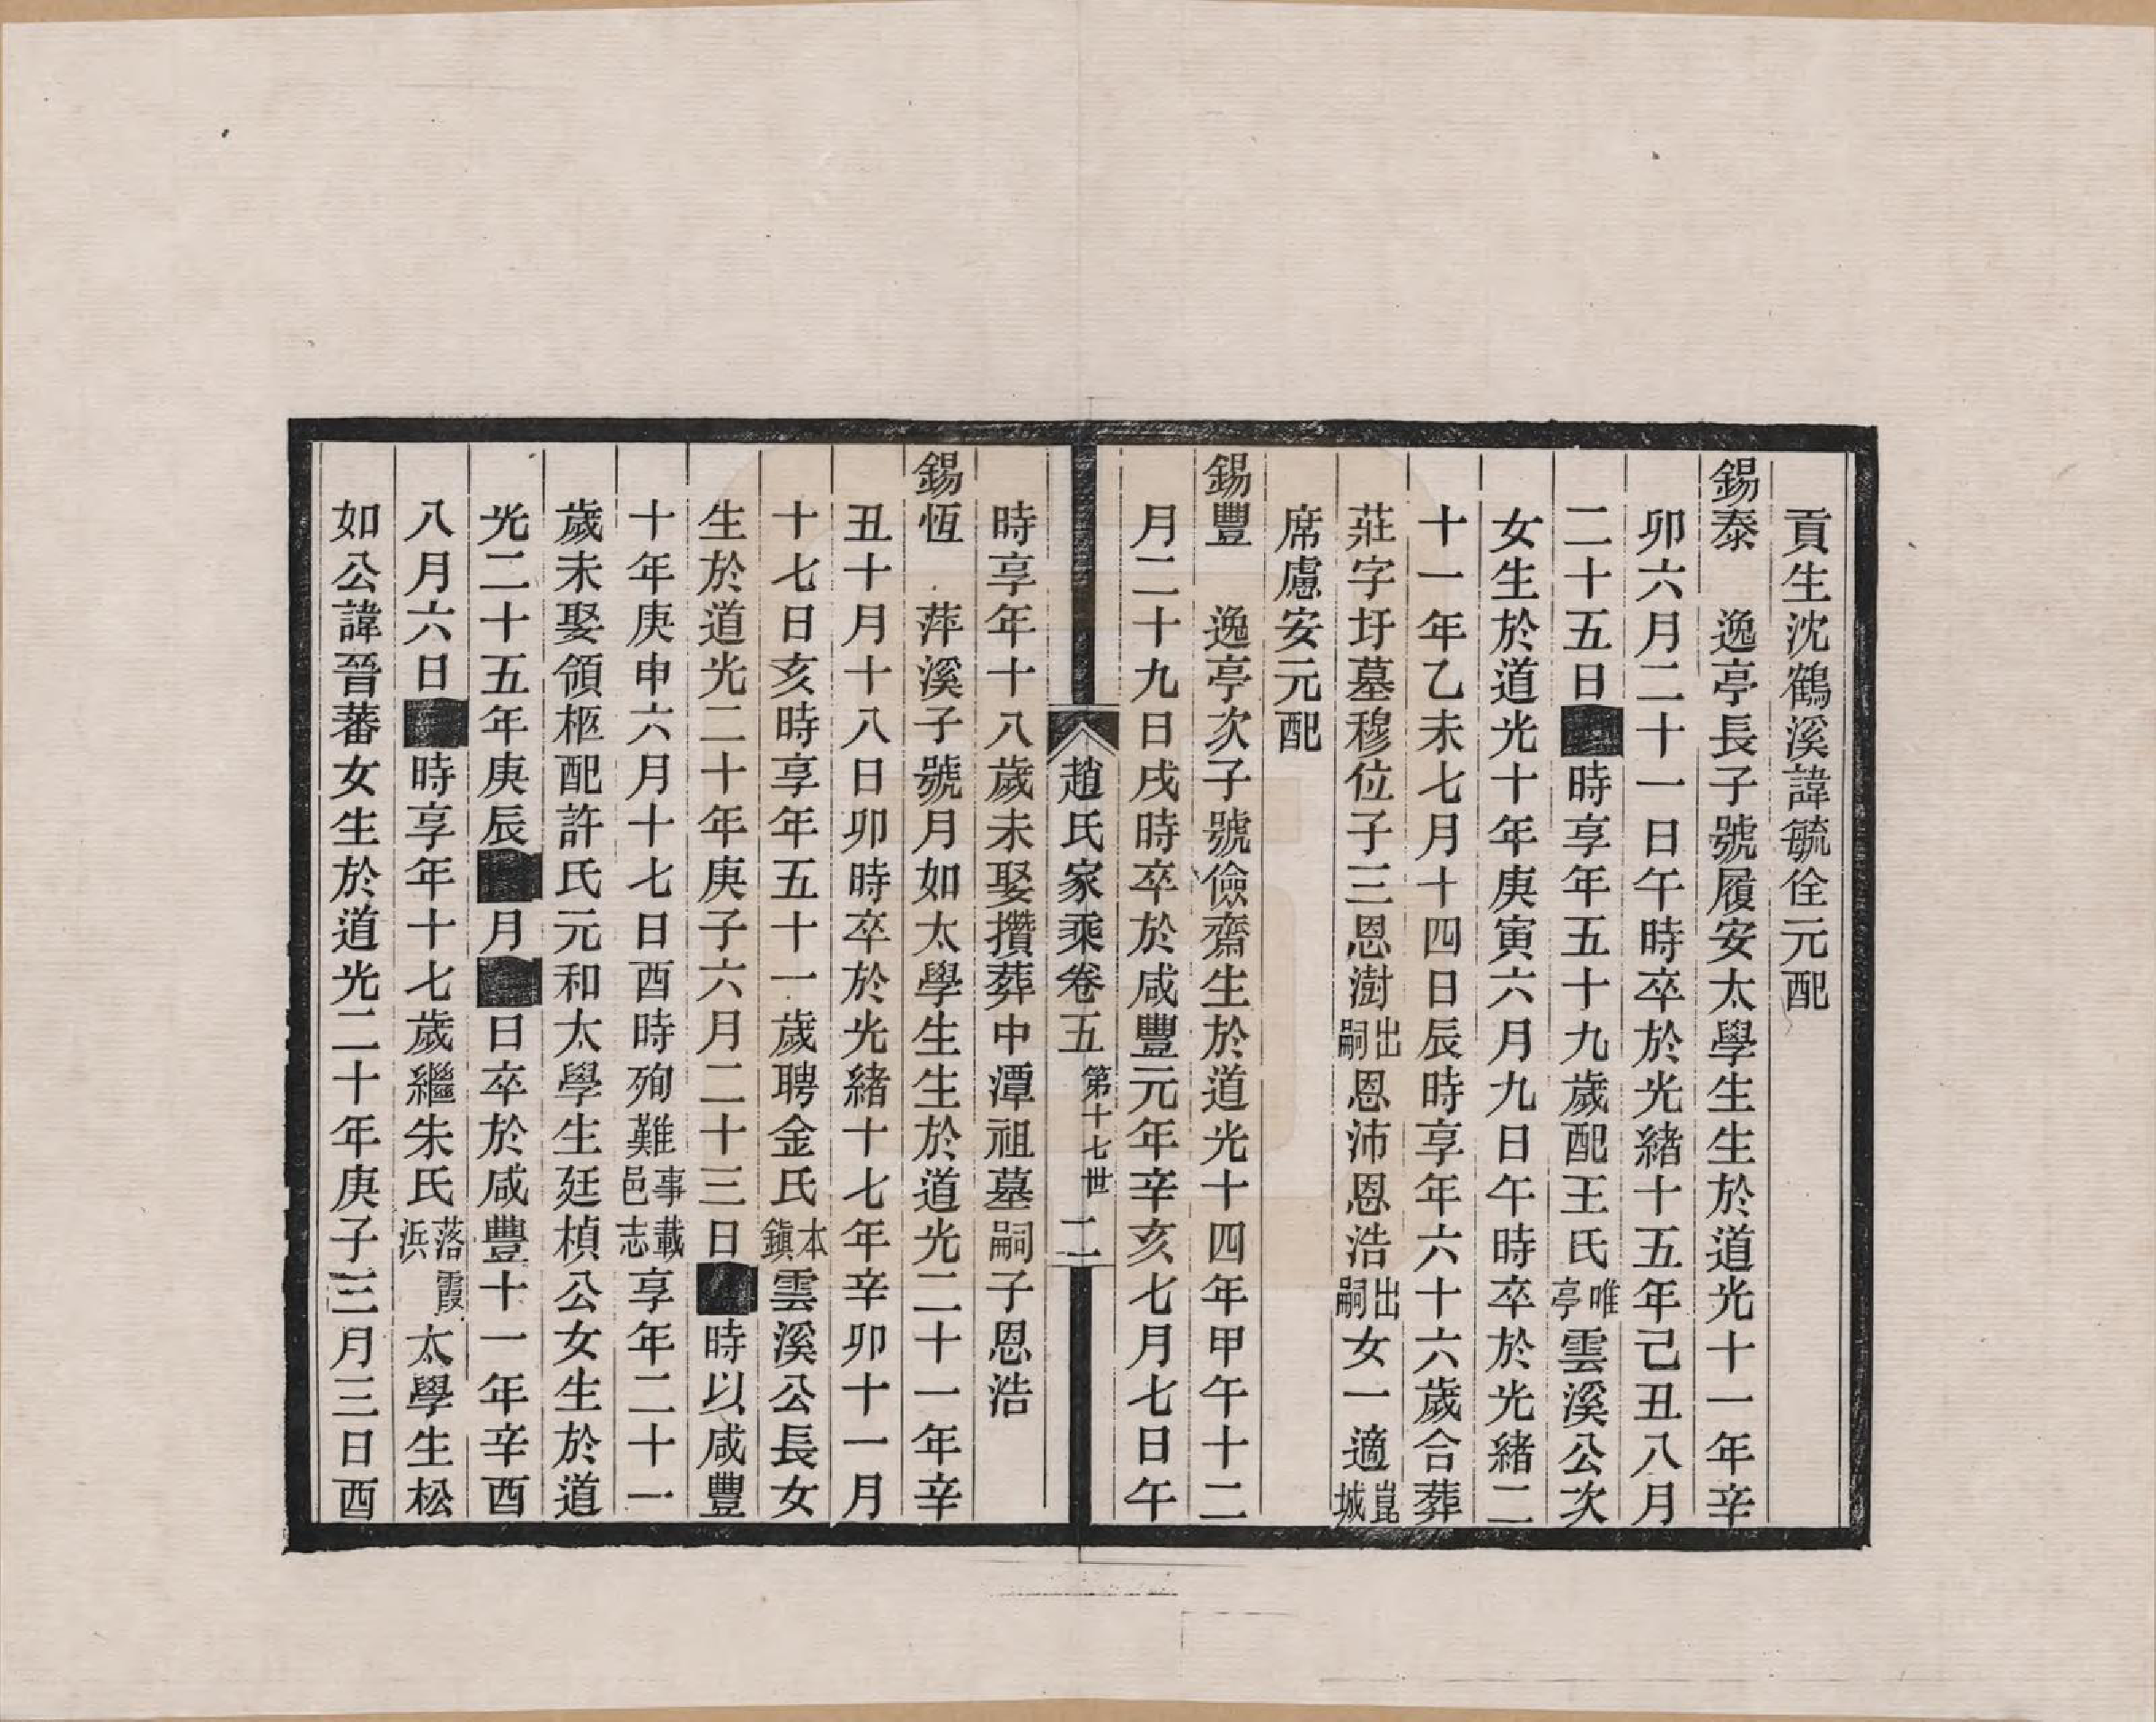 貢生沈鶴溪諱毓佺元配
錫泰　逸亭長子號履安太學生生於道光十一年辛
卯六月二十一日午時卒於光緒十五年己丑八月
二十五日■時享年五十九歲配王氏唯亭雲溪公次
女生於道光十年庚寅六月九日午時卒於光緒二
十一年乙未七月十四日辰時享年六十六歲合葬
莊字圩墓穆位子三恩澍出嗣恩沛恩浩出嗣女一適崑城
席慮安元配
錫豐　逸亭次子號儉齋生於道光十四年甲午十二
月二十九日戌時卒於咸豐元年辛亥七月七日午
趙氏家乘卷五　第十七世　二
時享年十八歲未娶攢葬中潭祖墓嗣子恩浩
錫恆　萍溪子號月如太學生生於道光二十一年辛
丑十月十八日卯時卒於光緒十七年辛卯十一月
十七日亥時享年五十一歲聘金氏本鎭雲溪公長女
生於道光二十年庚子六月二十三日■時以咸豐
十年庚申六月十七日酉時殉難事載邑志享年二十一
歲未娶領柩配許氏元和太學生廷楨公女生於道
光二十五年庚辰■月■日卒於咸豐十一年辛酉
八月六日■時享年十七歲繼朱氏落霞浜太學生松
如公諱晉蕃女生於道光二十年庚子三月三日酉